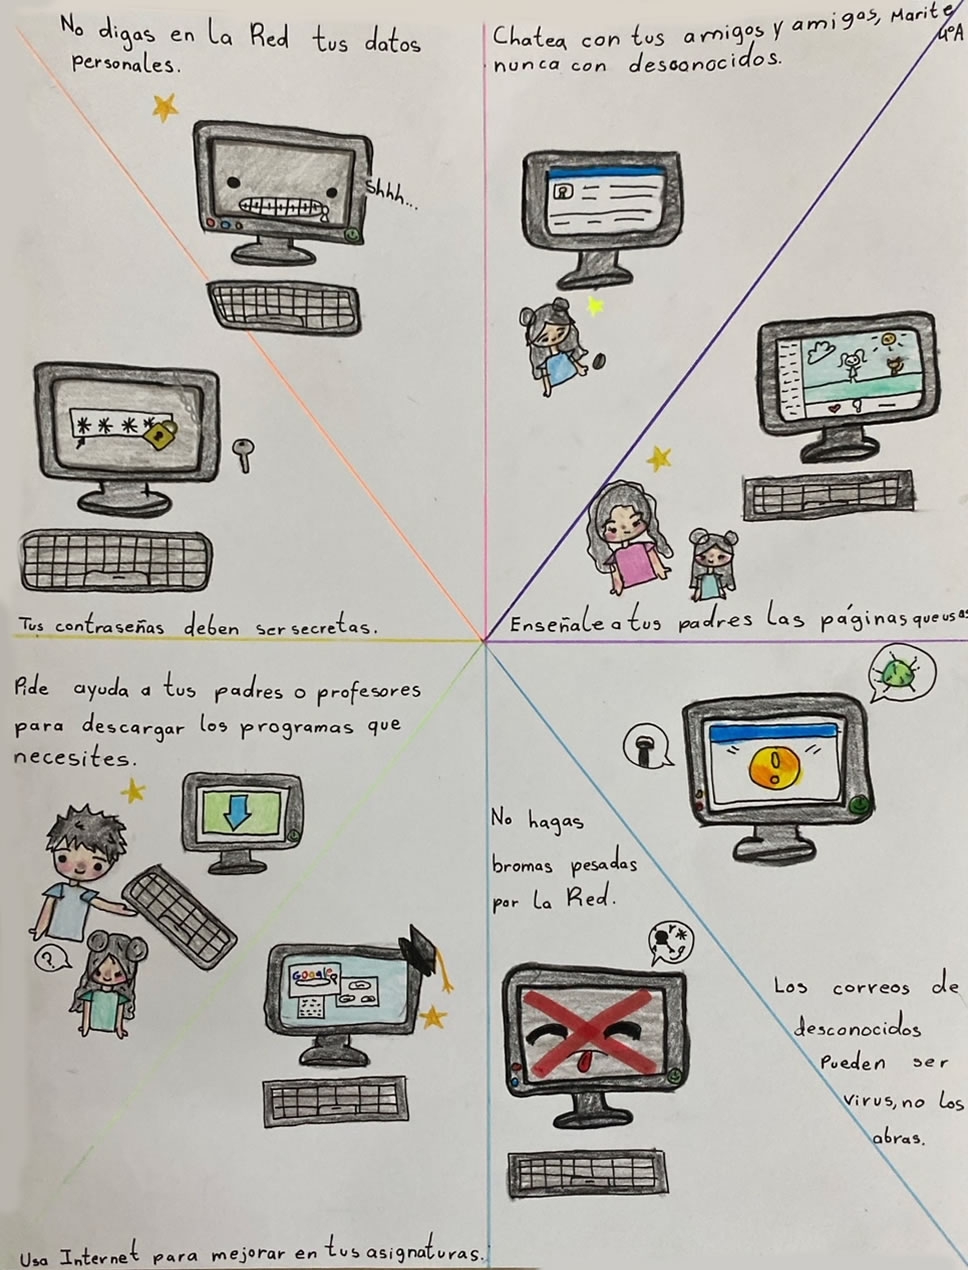 No digas en la Red tus datos
personales.
shhh...
Chatea con tus amigos y amigas,
nunca con desconocidos.
Marite
4ºA
* * * *
Tus contraseñas deben ser secretas.
Enseñale a tus padres las páginas que usas
Pide ayuda a tus padres o profesores
para descargar los programas que
necesites.
?
Google
Usa Internet para mejorar en tus asignaturas.
No hagas
bromas pesadas
por la Red.
Los correos de
desconocidos
Pueden ser
virus, no los
abras.